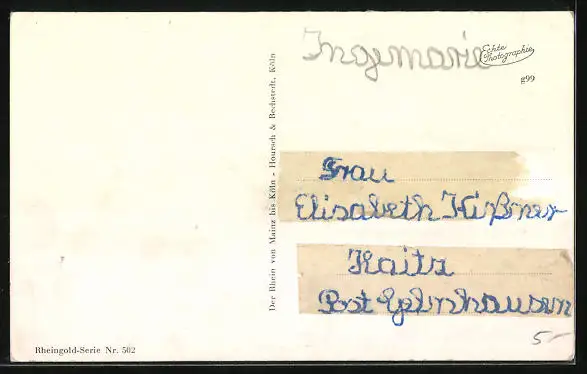 Ingemarie
Echte
Photographie
g99
Der Rhein von Mainz bis Köln - Hoursch & Bechstedt, Köln
Frau
Elisabeth Kißner
Kaitz
Post
5-
Rheingold-Serie Nr. 502